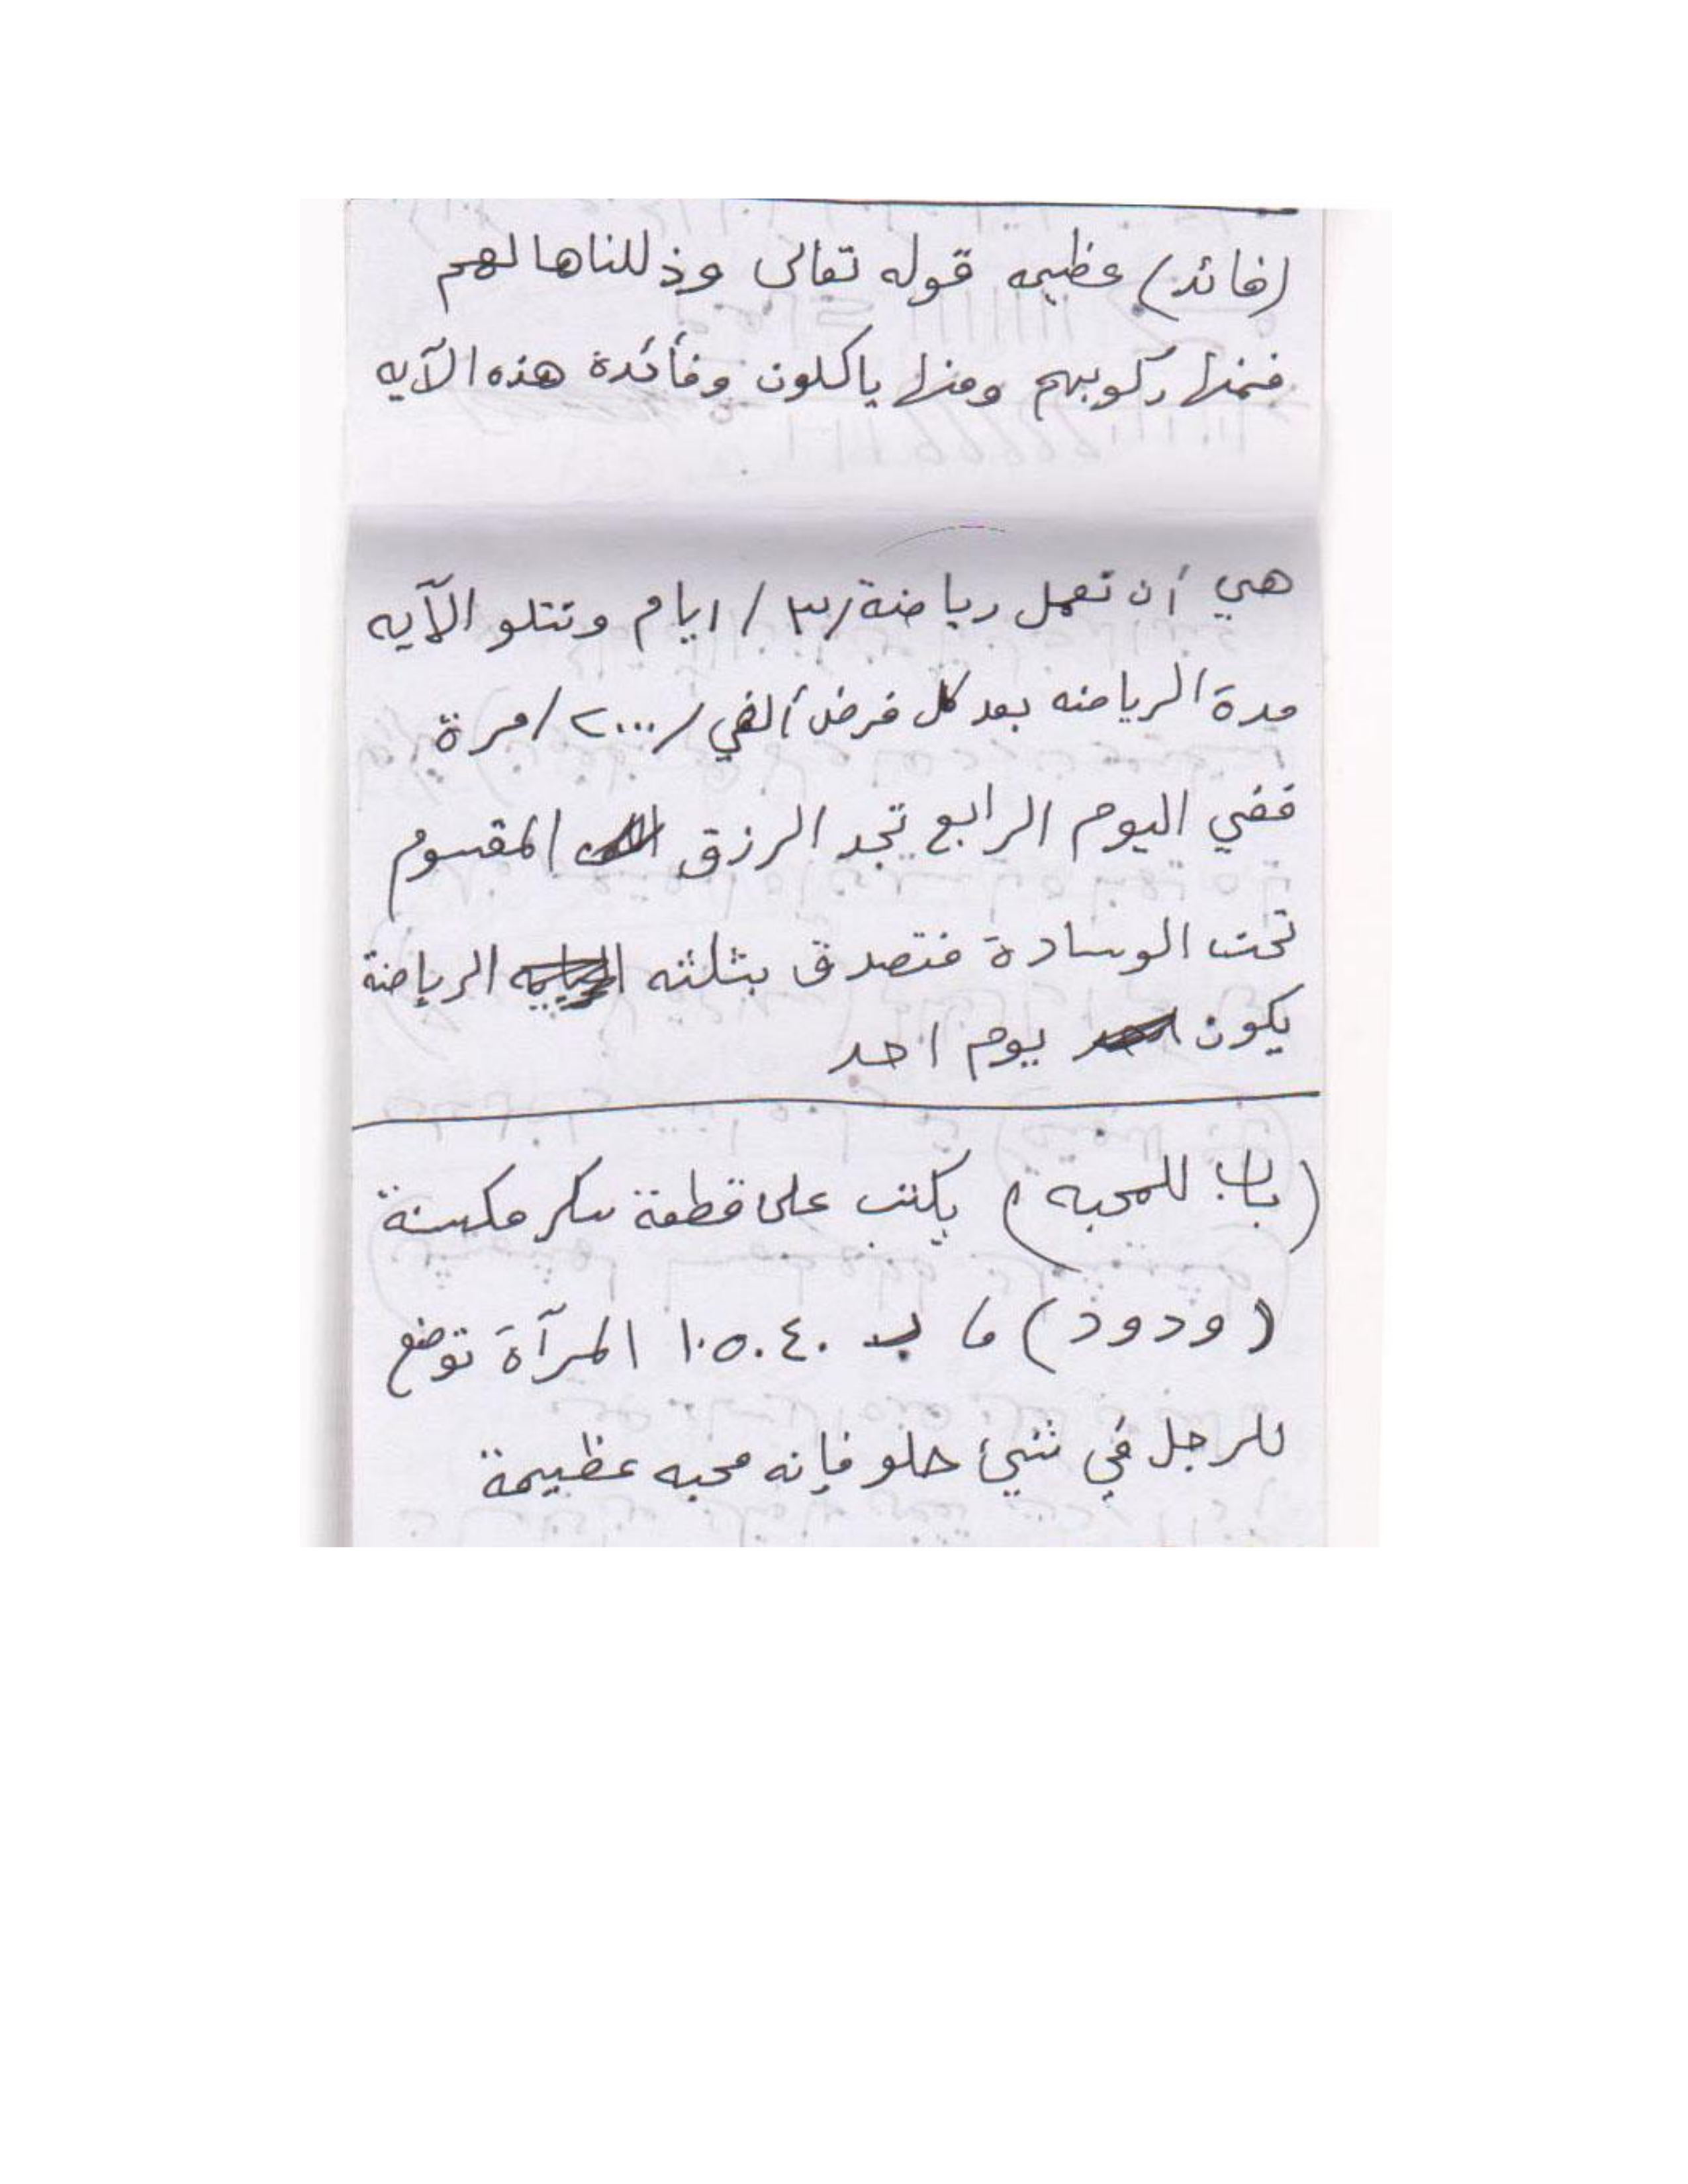 (فائد) عظيمه قوله تعالى وذللناها لهم
فمنها ركوبهم ومنها ياكلون وفأئدة هذه الآيه
هي أن تعمل رياضة /٣/ ايام وتتلو الآيه
مدة الرياضه بعد كل فرض ألفي /٢٠٠٠/ مرة
ففي اليوم الرابع تجد الرزق المقسوم
تحت الوسادة فتصدق بثلثه الرياضة
يكون يوم احد
(باب للمحبه) يكتب على قطعة سكر مكسنة
(ودود) ما ب ١٠٥٠٤٠ المرآة توضع
للرجل في شيئ حلو فإنه محبه عظيمة